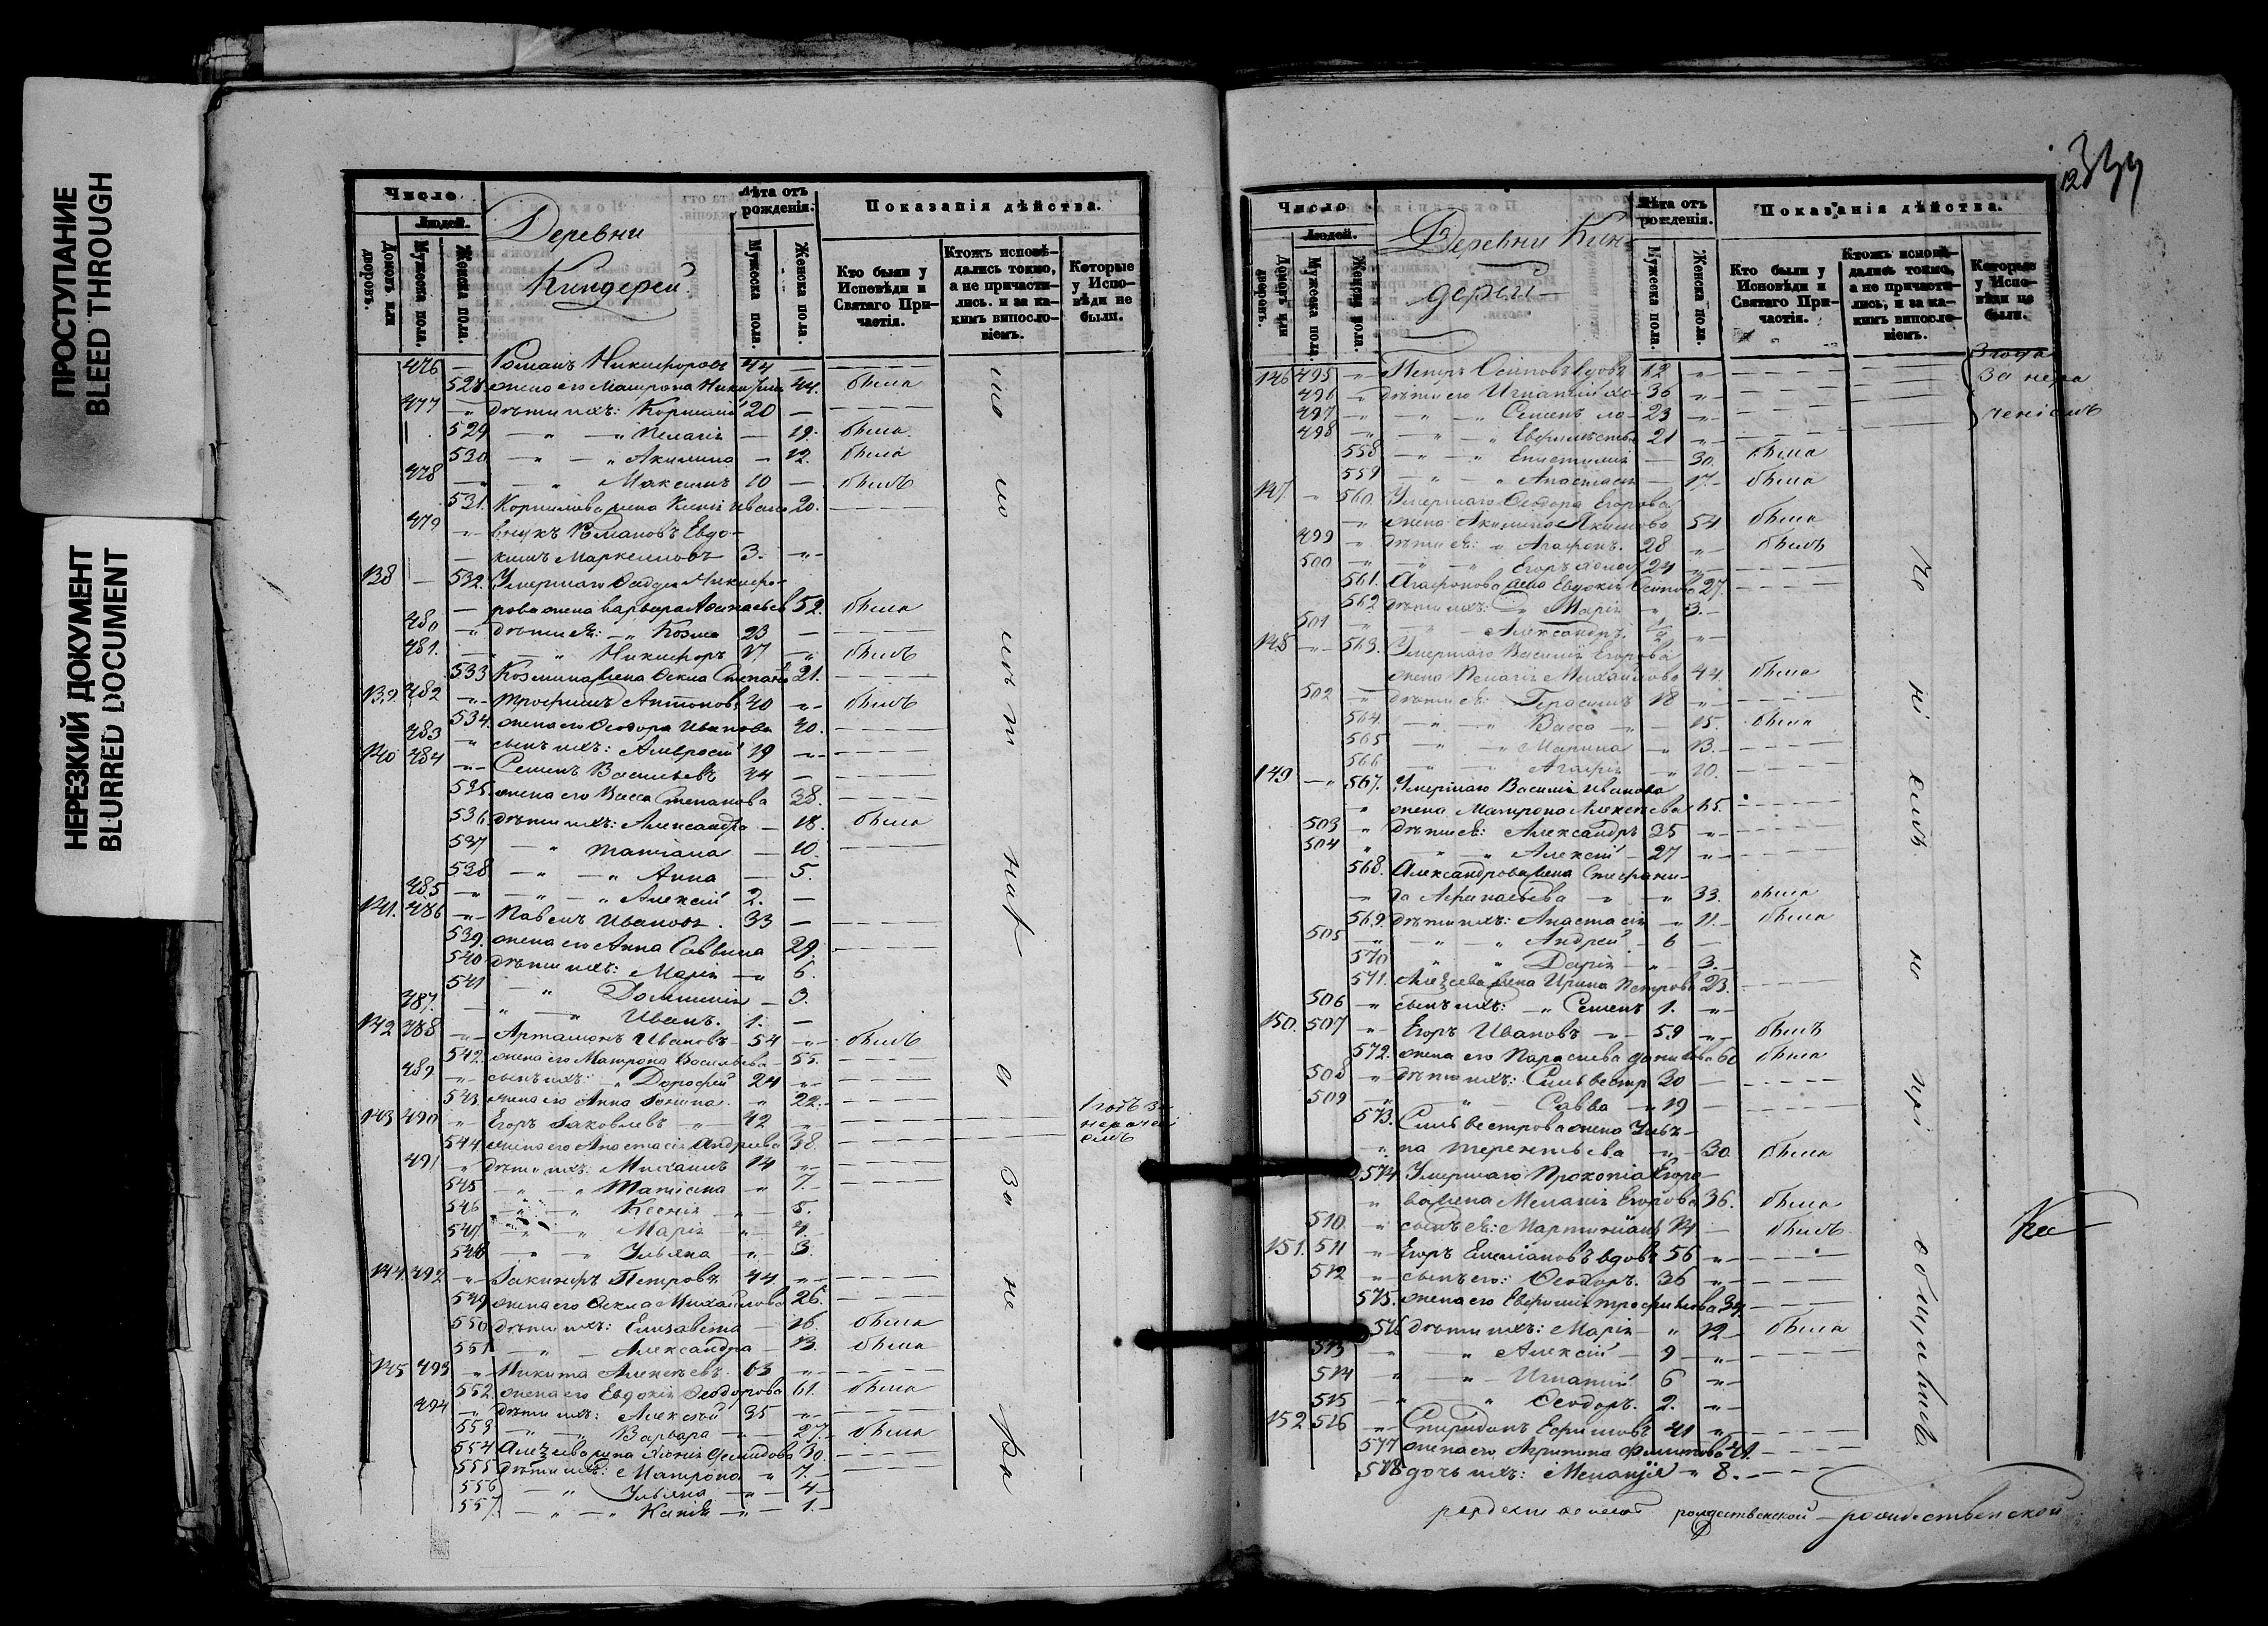 ПРОСТУПАНИЕ
BLEED THROUGH
НЕРЕЗКИЙ ДОКУМЕНТ
BLURRED DOCUMENT
Число
Людей.
Домовъ или дворовъ.
Мужеска пола.
Женска пола.
Деревни
Киндерей
Лѣта отъ рожденія.
Мужеска пола.
Женска пола.
Показанія дѣйства.
Кто были у Исповѣди и Святаго Причастія.
Ктожъ исповѣдались токмо, а не причастились. и за какимъ винословіемъ.
Которые у Исповѣди не были.
476 — Романъ Никифоровъ 44 —
528 жена его Матрона 44. была
477 дѣти ихъ: Корнилій 20 —
529 Пелагія — 19. была
530 Акилина — 12. была
478 Максимъ 10 — былъ
531. Корнилова жена Ксенія Ивано 20.
479 внукъ Романовъ Евдо-
кимъ Маркелловъ 3.
138 — 532. Умершаго Фаддея Никифо-
рова жена Варвара Афанасьев 52. была
480 дѣти ея: Козма 23 —
481. Никифоръ 17 былъ
533 Козмина жена Фекла Степано 21.
139. 482 Трофимъ Антонов. 40 былъ
534. жена его Феодора Иванова 40.
483 сынъ ихъ: Амвросій 19
140 484 Семенъ Васильевъ 44 —
535 жена его Васса Степанова 38.
536 дѣти ихъ: Александра — 18. была
537 Татіана — 10.
538 Анна — 5.
485 Алексій 2. —
141. 486 Павелъ Ивановъ. 33 —
539. жена его Анна Саввина 29.
540 дѣти ихъ: Марія 6.
541 Домникія — 3.
487. Иванъ. 1. —
142 488 Артамонъ Ивановъ 54 былъ
542. жена его Матрона Васильева 55.
489 сынъ ихъ: Дорофей 24
543. жена его Анна 22.
143 490 Егоръ Іаковлевъ 42 1 годъ за нераче
544. жена его Анастасія Андреева 38. емъ
491 дѣти ихъ: Михаилъ 14
545 Татіана 7.
546 Ксенія 5.
547 Марія 4.
548 Ульяна 3.
144 492 Іакинфъ Петровъ 44
549 жена его Фекла Михайлова 26.
550 дѣти ихъ: Елизавета 16. была
551 Александра — 13. была
145 493 Никита Алексѣевъ 63
552. жена его Евдокія Феодорова 61. была
494 дѣти ихъ: Алексѣй 35
553 Варвара 27. была
554 Алексѣева жена Хіонія Демидова 30.
555 дѣти ихъ: Матрона 7.
556 Ульяна 4
557. 1.
Число
Людей.
Домовъ или дворовъ.
Мужеска пола.
Женска пола.
Деревни Кин-
дерей
Лѣта отъ рожденія.
Мужеска пола.
Женска пола.
Показанія дѣйства.
Кто были у Исповѣди и Святаго Причастія.
Ктожъ исповѣдались токмо, а не причастились, и за какимъ винословіемъ.
Которые у Исповѣди не были.
146 495 Петръ Осиповъ вдовъ 62 3 года
496 дѣти его Игнатій хо- 36 за нера
497 Семенъ хо- 23 ченіемъ
498 21
558 Епистимія — 30. была
559 Анастасія — 17. была
147. 560. Умершаго Феодора Егорова
жена Акилина Якимова 54 была
499 дѣти ея: Агафонъ. 28 былъ
500 Егоръ холос 24
561. Агафонова жена Евдокія Осипов 27.
562 дѣти ихъ: Марія 3.
501 Александръ. 1/2
148 563. Умершаго Василія Егорова
жена Пелагія Михайлова 44 была
502 дѣти ея: Герасимъ 18
564. Васса 15. была
565 Марина 13.
566 Агафія 10.
149 567. Умершаго Василія Иванова
жена Матрона Алексѣева 65.
503 дѣти ея: Александръ 35
504 Алексій 27
568. Александрова жена Стефани-
да Афанасьева 33. была
569. дѣти ихъ: Анастасія 11. была
505 Андрей 6 —
570 Дарія 3.
571. Алексѣева жена Ирина Петрова 23.
506 сынъ ихъ: Семенъ 1.
150. 507 Егоръ Ивановъ 59 былъ
572. жена его Параскева Данилова 60 была
508 дѣти ихъ: Сильвестр 30 —
509 Савва 19
573. Сильвестрова жена Улья-
на Терентьева 30 была
574 Умершаго Прокопія Егоро-
ва жена Меланія Егорова 36. была
510 сынъ ея: Мартиніанъ 14. былъ
151. 511 Егоръ Емеліановъ вдовъ 56
512 сынъ его: Феодоръ. 36
575. жена его Евфимія Трофимова 34
576 дѣти ихъ: Марія 12 была
513 Алексій 9
514 Игнатій 6
515 Феодоръ. 2.
152 516 Спиридонъ Ефимовъ 41
577 жена его Агрипина Филипова 41.
578 дочь ихъ: 8.
рождественской рождественской